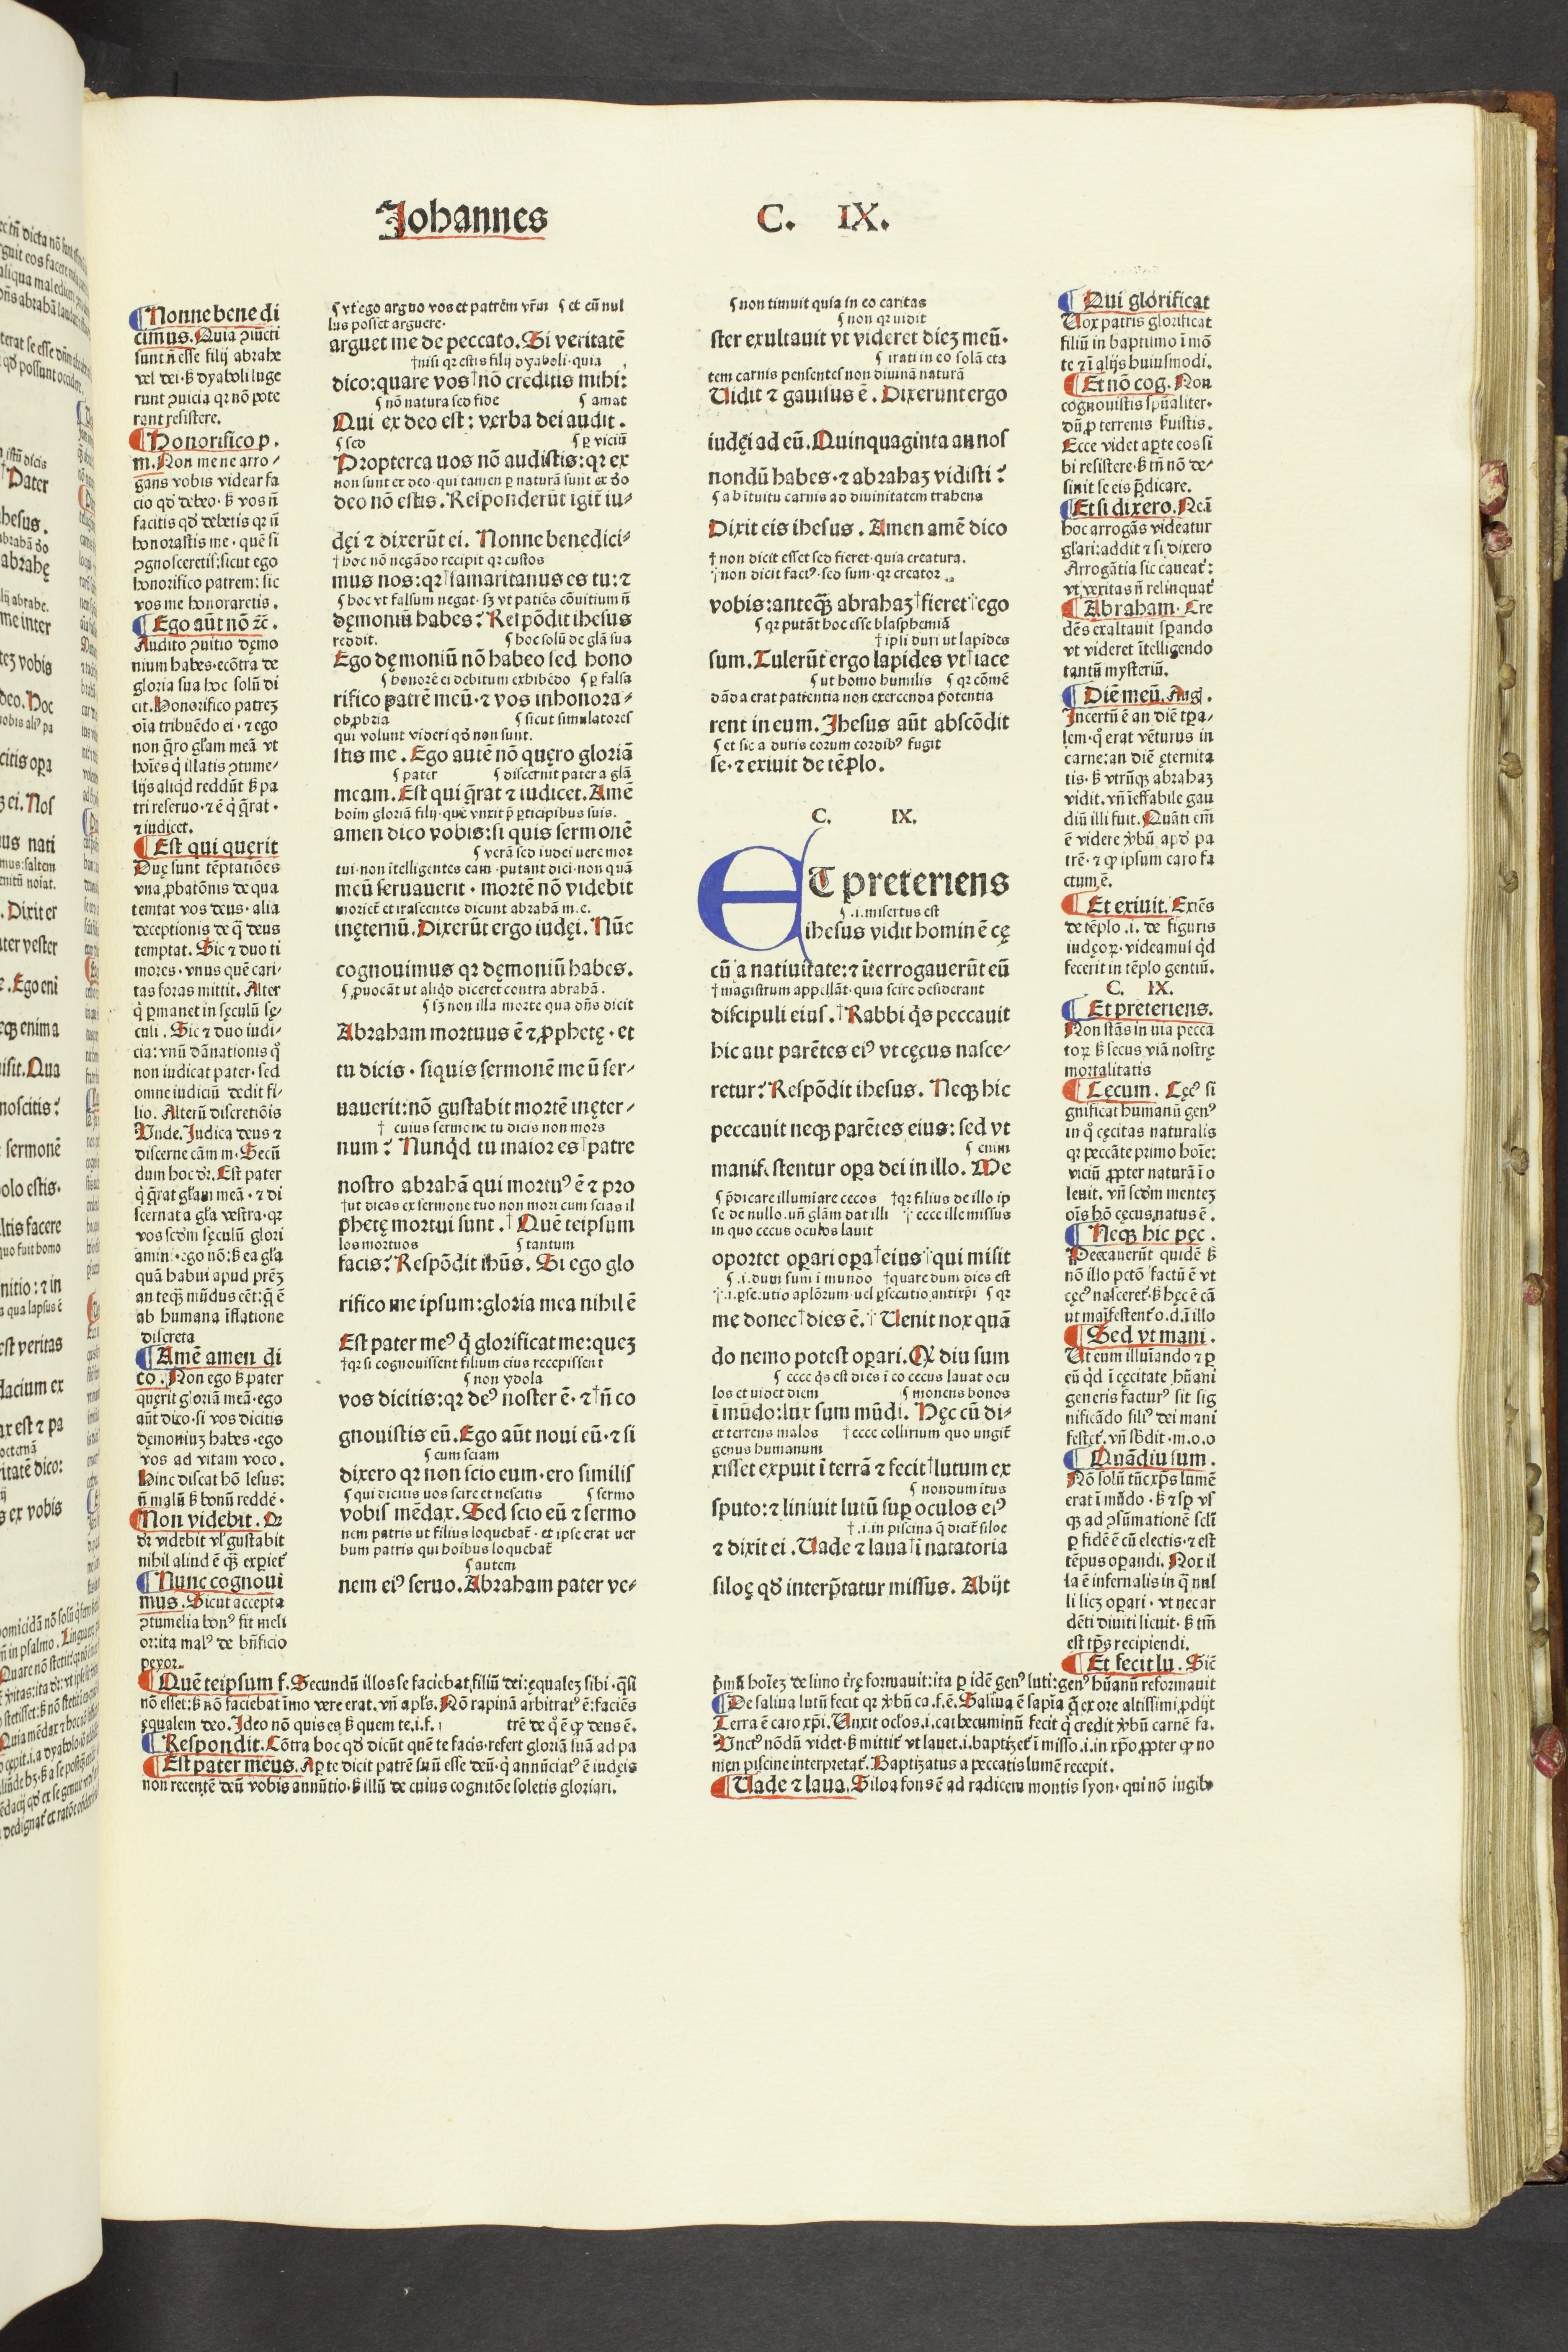 Johannes
C. IX.
Nonne bene di
cimus. Quia ꝯuicti
sunt n̄ esse filij abrahe
vel dei· ẜ dyaboli luge
runt ꝯuicia qꝛ nō pote
rant resistere.
Honorifico p.
m. Non me ne arro⸗
gans vobis videar fa
cio qd̄ debeo· ẜ vos n̄
facitis qd̄ debetis qꝛ n̄
honorastis me· quē si
ꝯgnosceretis: sicut ego
honorifico patrem: sic
vos me honoraretis.
Ego aūt nō ⁊c̄.
Audito ꝯuitio dęmo
nium habes· ecōtra de
gloria sua hoc solū di
cit. Honorifico patreꝫ
oīa tribuēdo ei· ⁊ ego
non q̄ro gl̄am meā vt
hoīes q̇ illatis ꝯtume⸗
lijs aliqd reddūt ẜ pa
tri reseruo· ⁊ ē q̇ q̄rat·
⁊ iudicet.
Est qui querit
Duę sunt tēptatiões
vna ꝓbatōnis de qua
temtat vos deus· alia
deceptionis de q̄ deus
temptat. Sic ⁊ duo ti
mores· vnus quē cari⸗
tas foras mittit. Alter
q̇ ꝑmanet in sęculū sę⸗
culi. Sic ⁊ duo iudi⸗
cia: vnū dānationis q̊
non iudicat pater· sed
omne iudiciū dedit fi⸗
lio. Alterū discretiōis
Vnde. Judica deus ⁊
discerne cām m. Secū
dum hoc dr̄. Est pater
q̇ q̄rat gl̄am meā· ⁊ di
scernat a gl̄a vestra· qꝛ
vos scdm̄ sęculū glori
amini· ego nō: ẜ ea gl̄a
quā habui apud prēꝫ
an teqꝫ mūdus eēt: q̄ ē
ab humana īflatione
discreta
Amē amen di
co. Non ego ẜ pater
quęrit gloriā meā· ego
aūt dico· si vos dicitis
dęmoniuꝫ habes· ego
vos ad vitam voco.
Hinc discat hō lesus:
n̄ malū ẜ bonū reddē·
Non videbit.
dr̄ videbit vl̄ gustabit
nihil aliud ē qꝫ expiet̄
Nunc cognoui
mus. Sicut accepta
ꝯtumelia bonꝰ fit meli
or: ita malꝰ de bn̄ficio
peyor.
ꞩ vt ego arguo vos et patrem vr̄m ꞩ et cū nul
lus posset arguere·
arguet me de peccato. Si veritatē
†nisi qꝛ estis filij dyaboli· quia
dico: quare vos†nō creditis mihi:
ꞩ nō natura sed fide ꞩ amat
Qui ex deo est: verba dei audit.
ꞩ sed ꞩ ꝑ viciū
Propterea uos nō audistis: qꝛ ex
non sunt ex deo· qui tamen ꝑ naturā sunt ex do
deo nō estis. Responderūt igit̄ iu⸗
dęi ⁊ dixerūt ei. Nonne benedici⸗
†hoc nō negādo recipit qꝛ custos
mus nos: qꝛ†samaritanus es tu: ⁊
ꞩ hoc vt falsum negat· sꝫ vt patiēs cōuitium n̄
dęmoniū habes? Respōdit ihesus
reddit. ꞩ hoc solū de glā sua
Ego dęmoniū nō habeo sed hono
ꞩ honorē ei debitum exhibēdo ꞩ ꝑ falsa
rifico patrē meū· ⁊ vos inhonora⸗
obꝓbria ꞩ sicut simulatores
qui volunt videri qd̄ non sunt.
stis me. Ego autē nō quęro gloriā
ꞩ pater ꞩ discernit pater a glā
meam. Est qui q̄rat ⁊ iudicet. Amē
hoim gloriā filij· quē vnxit p̄ ꝑticipibus suis.
amen dico vobis: si quis sermonē
ꞩ verā sed iudei uere mor
tui· non ītelligentes eam· putant dici· non quā
meū seruauerit· mortē nō videbit
moriet̄ et irascentes dicunt abrahā m. e.
inęternū. Dixerūt ergo iudęi. Nūc
cognouimus qꝛ dęmoniū habes.
ꞩ ꝓuocāt ut aliqd diceret contra abrahā.
ꞩ sꝫ non illa morte qua dn̄s dicit
Abraham mortuus ē ⁊ ꝓphetę· et
tu dicis· siquis sermonē meū ser⸗
uauerit: nō gustabit mortē inęter⸗
† cuius sermone tu dicis non mors
num? Nunqd tu maior es†patre
nostro abrahā qui mortuꝰ ē ⁊ pro
†ut dicas ex sermone tuo non mori cum scias il
phetę mortui sunt.†Quē teipsum
los mortuos ꞩ tantum
facis? Respōdit ihūs. Si ego glo
rifico me ipsum: gloria mea nihil ē
Est pater meꝰ q̇ glorificat me: queꝫ
†qꝛ si cognouissent filium eius recepissent
ꞩ non ydola
vos dicitis: qꝛ deꝰ noster ē· ⁊†n̄ co
gnouistis eū. Ego aūt noui eū· ⁊ si
ꞩ cum sciam
dixero qꝛ non scio eum· ero similis
ꞩ qui dicitis uos scire et nescitis ꞩ sermo
vobis mēdax. Sed scio eū ⁊ sermo
nem patris ut filius loquebat̄· et ipse erat uer
bum patris qui hoibus loquebat̄
ꞩ autem
nem eiꝰ seruo. Abraham pater ve⸗
Quē teipsum f. Secundū illos se faciebat filiū dei: ęqualeꝫ sibi· q̄si
nō esset: ẜ nō faciebat īmo vere erat. vn̄ apl̄s. Nō rapinā arbitratꝰ ē: faciēs
ęqualem deo. Ideo nō quis es ẜ quem te. i. f. trē de q̊ ē ꝙ deus ē.
Respondit. Cōtra hoc qd̄ dicūt quē te facis· refert gloriā suā ad pa
Est pater meus. Aꝑte dicit patrē suū esse deū· q̇ annūciatꝰ ē iudęis
non recentē deū vobis annūtio· ẜ illū de cuius cognitōe soletis gloriari.
ꞩ non timuit quia in eo caritas
ꞩ non qꝛ uidit
ster exultauit vt videret dieꝫ meū·
ꞩ irati in eo solā eta
tem carnis pensentes non diuinā naturā
Uidit ⁊ gauisus ē. Dixerunt ergo
iudęi ad eū. Quinquaginta annos
nondū habes· ⁊ abrahaꝫ vidisti?
ꞩ ab ītuitu carnis ad diuinitatem trahens
Dixit eis ihesus. Amen amē dico
† non dicit esset sed fieret· quia creatura.
⸆ non dicit factꝰ· sed sum· qꝛ creator
vobis: anteqꝫ abrahaꝫ†fieret⸆ego
ꞩ qꝛ putāt hoc esse blasphemiā
† ipsi duri ut lapides
sum. Tulerūt ergo lapides vt†iace
ꞩ ut homo humilis ꞩ qꝛ cōmē
dāda erat patientia non exercenda potentia
rent in eum. Jhesus aūt abscōdit
ꞩ et sic a duris eorum cordibꝰ fugit
se· ⁊ exiuit de tēplo.
C. IX.
ET preteriens
ꞩ .i. misertus est
ihesus vidit hominē cę
cū a natiuitate: ⁊ īterrogauerūt eū
†magistrum appellāt· quia scire desiderant
discipuli eius.†Rabbi q̇s peccauit
hic aut parētes eiꝰ vt cęcus nasce⸗
retur? Respōdit ihesus. Neqꝫ hic
peccauit neqꝫ parētes eius: sed vt
ꞩ enim
manifestentur oꝑa dei in illo. Me
ꞩ p̄dicare illumīare cecos †qꝛ filius de illo ip
se de nullo. un̄ glām dat illi ⸆ ecce ille missus
in quo cecus oculos lauit
oportet oꝑari oꝑa†eius⸆qui misit
ꞩ .i. dum sum ī mundo †quare dum dies est
⸆ .i. ꝑsecutio aplōrum· uel ꝑsecutio antixp̄i ꞩ qꝛ
me donec†dies ē.⸆Uenit nox quā
do nemo potest oꝑari. Qꝫ diu sum
ꞩ ecce q̇s est dies ī co cecus lauat ocu
los et uidet diem ꞩ monens bonos
ī mūdo: lux sum mūdi. Hęc cū di⸗
et terrens malos †ecce collirium quo ungit̄
genus humanum
xisset expuit ī terrā ⁊ fecit†lutum ex
ꞩ nondum itus
sputo: ⁊ liniuit lutū suꝑ oculos eiꝰ
† .i. in piscina q̄ dicit̄ siloe
⁊ dixit ei. Uade ⁊ laua†ī natatoria
siloę qd̄ interp̄tatur missus. Abijt
Qui glorificat
Uox patris glorificat
filiū in baptismo ī mō
te ⁊ ī alijs huiusmodi.
Et nō cog. Non
cognouistis spūaliter·
dū ꝑ terrenis ẜuistis.
Ecce videt aꝑte eos si
bi resistere· ẜ tn̄ nō de⸗
sinit se eis p̄dicare.
Et si dixero. Ne ī
hoc arrogās videatur
gl̄ari: addit ⁊ si dixero
Arrogātia sic caueat̄:
vt veritas n̄ relinquat̄
Abraham. Cre
dēs exaltauit sꝑando
vt videret ītelligendo
tantū mysteriū.
Diē meū. Aug.
Incertū ē an diē tꝑa⸗
lem· q̊ erat vēturus in
carne: an diē ęternita
tis· ẜ vtrūqꝫ abrahaꝫ
vidit. vn̄ īeffabile gau
diū illi fuit. Quāti em̄
ē videre v̊bū apd̄ pa
trē· ⁊ ꝙ ipsum caro fa
ctum ē.
Et exiuit. Exiēs
de tēplo .i. de figuris
iudęoꝝ· videamus qd
fecerit in tēplo gentiū.
C. IX.
Et preteriens.
Non stās in uia pecca
toꝝ ẜ secus viā nostrę
mortalitatis
Cęcum. Cęcꝰ si
gnificat humanū genꝰ
in q̊ cęcitas naturalis
qꝛ peccāte primo hoīe:
viciū ꝓpter naturā ī o
leuit. vn̄ scdm̄ menteꝫ
oīs hō cęcus natus ē.
Neqꝫ hic pęc.
Peccauerūt quidē ẜ
nō illo pctō factū ē vt
cęcꝰ nasceret̄· ẜ hęc ē cā
ut maīfestent̄ o. d. ī illo
Sed vt mani.
Ut eum illuīando ⁊ ꝑ
eū qd ī cęcitate hūani
generis facturꝰ sit sig
nificādo filiꝰ dei mani
festet̄. vn̄ sb̄dit· m. o. o
Quādiu sum.
Nō solū tūc xp̄s lumē
erat ī mūdo· ẜ ⁊ sꝑ vs
qꝫ ad ꝯsūmationē scl̄i
ꝑ fidē ē cū electis· ⁊ est
tēpus oꝑandi. Nox il
la ē infernalis in q̄ nul
li liceꝫ oꝑari· vt nec ar
dēti diuiti licuit· ẜ tm̄
est tp̄s recipiendi.
Et fecit lu. Sic̄
p̄mū hoīeꝫ de limo tr̄ę formauit: ita ꝑ idē genꝰ luti: genꝰ hūanū reformauit
De saliua lutū fecit qꝛ v̊bū ca. f. ē. Saliua ē sapīa q̄ ex ore altissimi ꝓdijt
Terra ē caro xp̄i. Unxit oclos .i. cathecuminū fecit q̇ credit v̊bū carnē fa.
Unctꝰ nōdū videt· ẜ mittit̄ vt lauet .i. baptizet̄ ī misso .i. in xp̄o ꝓpter ꝙ no
men piscine interpretat̄. Baptizatus a peccatis lumē recepit.
Uade ⁊ laua. Siloa fons ē ad radicem montis syon· qui nō iugibꝰ